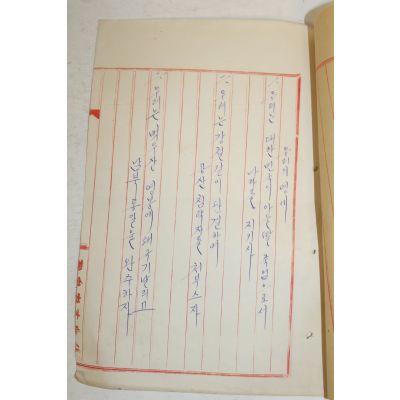 우리의 맹세
一. 우리는 대한민국의 아들딸 죽엄으로서
나라를 지키자
二. 우리는 강철같이 단결하여
공산침략자를 처부스자
三. 우리는 백두산 영봉에 태극기 날리고
남북통일을 완수하자